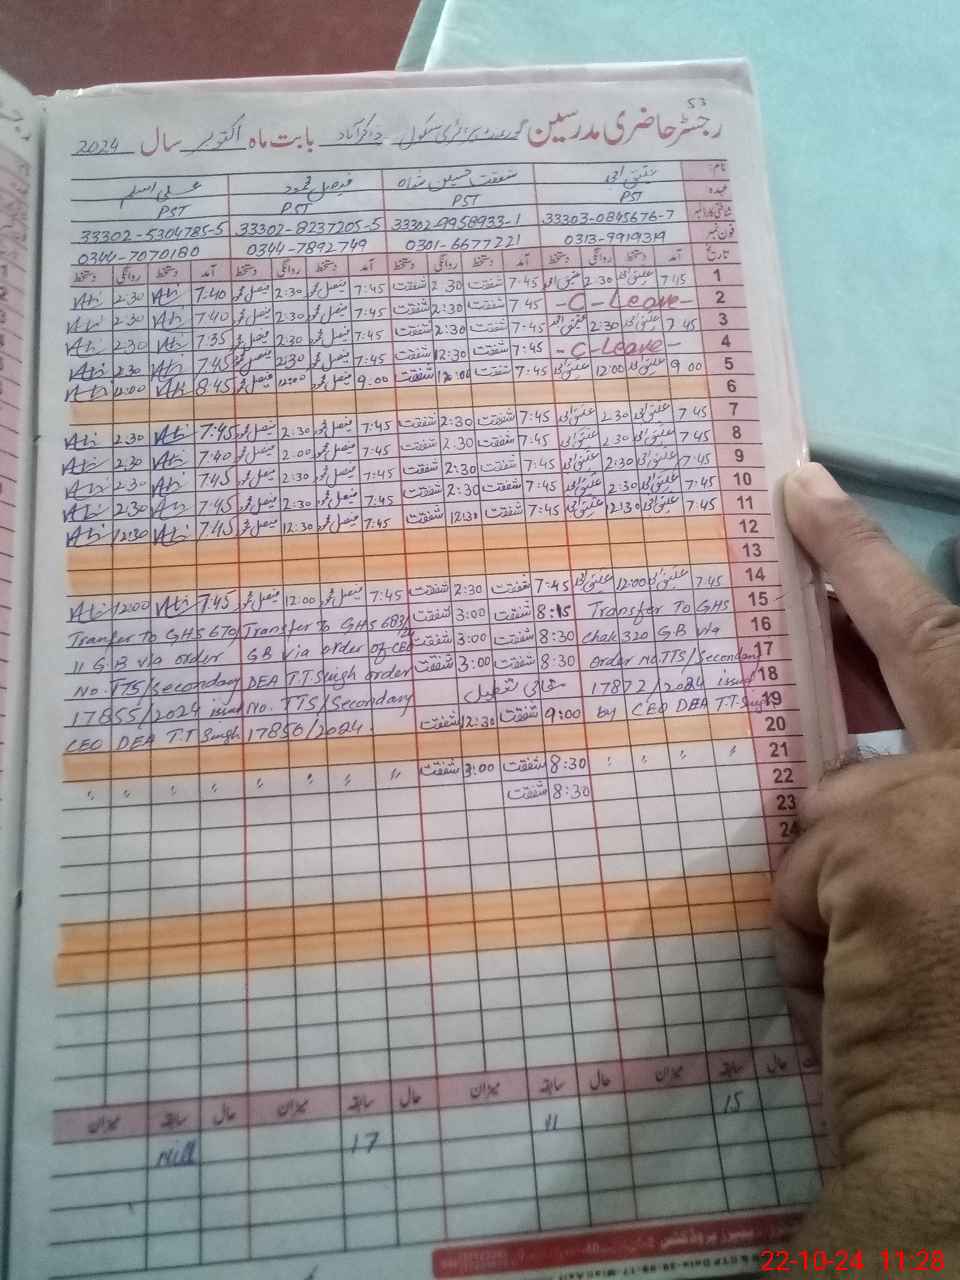 53
رجسٹر حاضری مدرسین گورنمنٹ پرائمری سکول ذاکر آباد بابت ماہ اکتوبر سال 2024
نام: عتیق الٰہی شفقت حسین شاہ فیصل محمود علی اسلم
عہدہ PST PST PST PST
شناختی کارڈ نمبر 33303-0845676-7 33302-9958933-1 33302-8237205-5 33302-5304785-5
فون نمبر 0313-9919319 0301-6677221 0344-7892749 0344-7070180
تاریخ آمد دستخط روانگی دستخط آمد دستخط روانگی دستخط آمد دستخط روانگی دستخط آمد دستخط روانگی دستخط
1 7:45 2:30 7:45 شفقت 2:30 شفقت 7:45 2:30 7:40 Ali 2:30 Ali
2 -C-Leave- 7:45 شفقت 2:30 شفقت 7:45 2:30 7:40 Ali 2:30 Ali
3 7:45 2:30 7:45 شفقت 2:30 شفقت 7:45 2:30 7:35 Ali 2:30 Ali
4 -C-Leave- 7:45 شفقت 12:30 شفقت 7:45 7:45 Ali 2:30 Ali
5 9:00 12:00 7:45 شفقت 12:00 شفقت 9:00 12:00 8:45 Ali 12:00 Ali
6
7 7:45 2:30 7:45 شفقت 2:30 شفقت 7:45 2:30 7:45 Ali 2:30 Ali
8 7:45 2:30 7:45 شفقت 2:30 شفقت 7:45 2:00 7:40 Ali 2:30 Ali
9 7:45 2:30 7:45 شفقت 2:30 شفقت 7:45 2:30 7:45 Ali 2:30 Ali
10 7:45 2:30 7:45 شفقت 2:30 شفقت 7:45 2:30 7:45 Ali 2:30 Ali
11 7:45 12:30 7:45 شفقت 12:30 شفقت 7:45 12:30 7:45 Ali 12:30 Ali
12
13
14 7:45 12:00 7:45 شفقت 2:30 شفقت 7:45 12:00 7:45 Ali 12:00 Ali
15 Transfer To GHS 8:15 شفقت 3:00 شفقت Transfer To GHS 683/ Tranfer To GHS 670/
16 Chak 320 GB via 8:30 شفقت 3:00 شفقت GB via order of CEO 11 G.B via order
17 order No. TTS/Secondary 8:30 شفقت 3:00 شفقت DEA T.T.Singh order No. TTS/Secondary
18 17872/2024 issued مقامی تعطیل No. TTS/Secondary 17855/2024 issued
19 by CEO DEA T.T.Singh 9:00 شفقت 12:30 شفقت 17856/2024. CEO DEA T.T Singh
20
21 " " " " 8:30 شفقت 3:00 شفقت " " " " " " " "
22 8:30 شفقت
23
24
حال سابقہ میزان حال سابقہ میزان حال سابقہ میزان حال سابقہ میزان
15 11 17 Nill
22-10-24 11:28